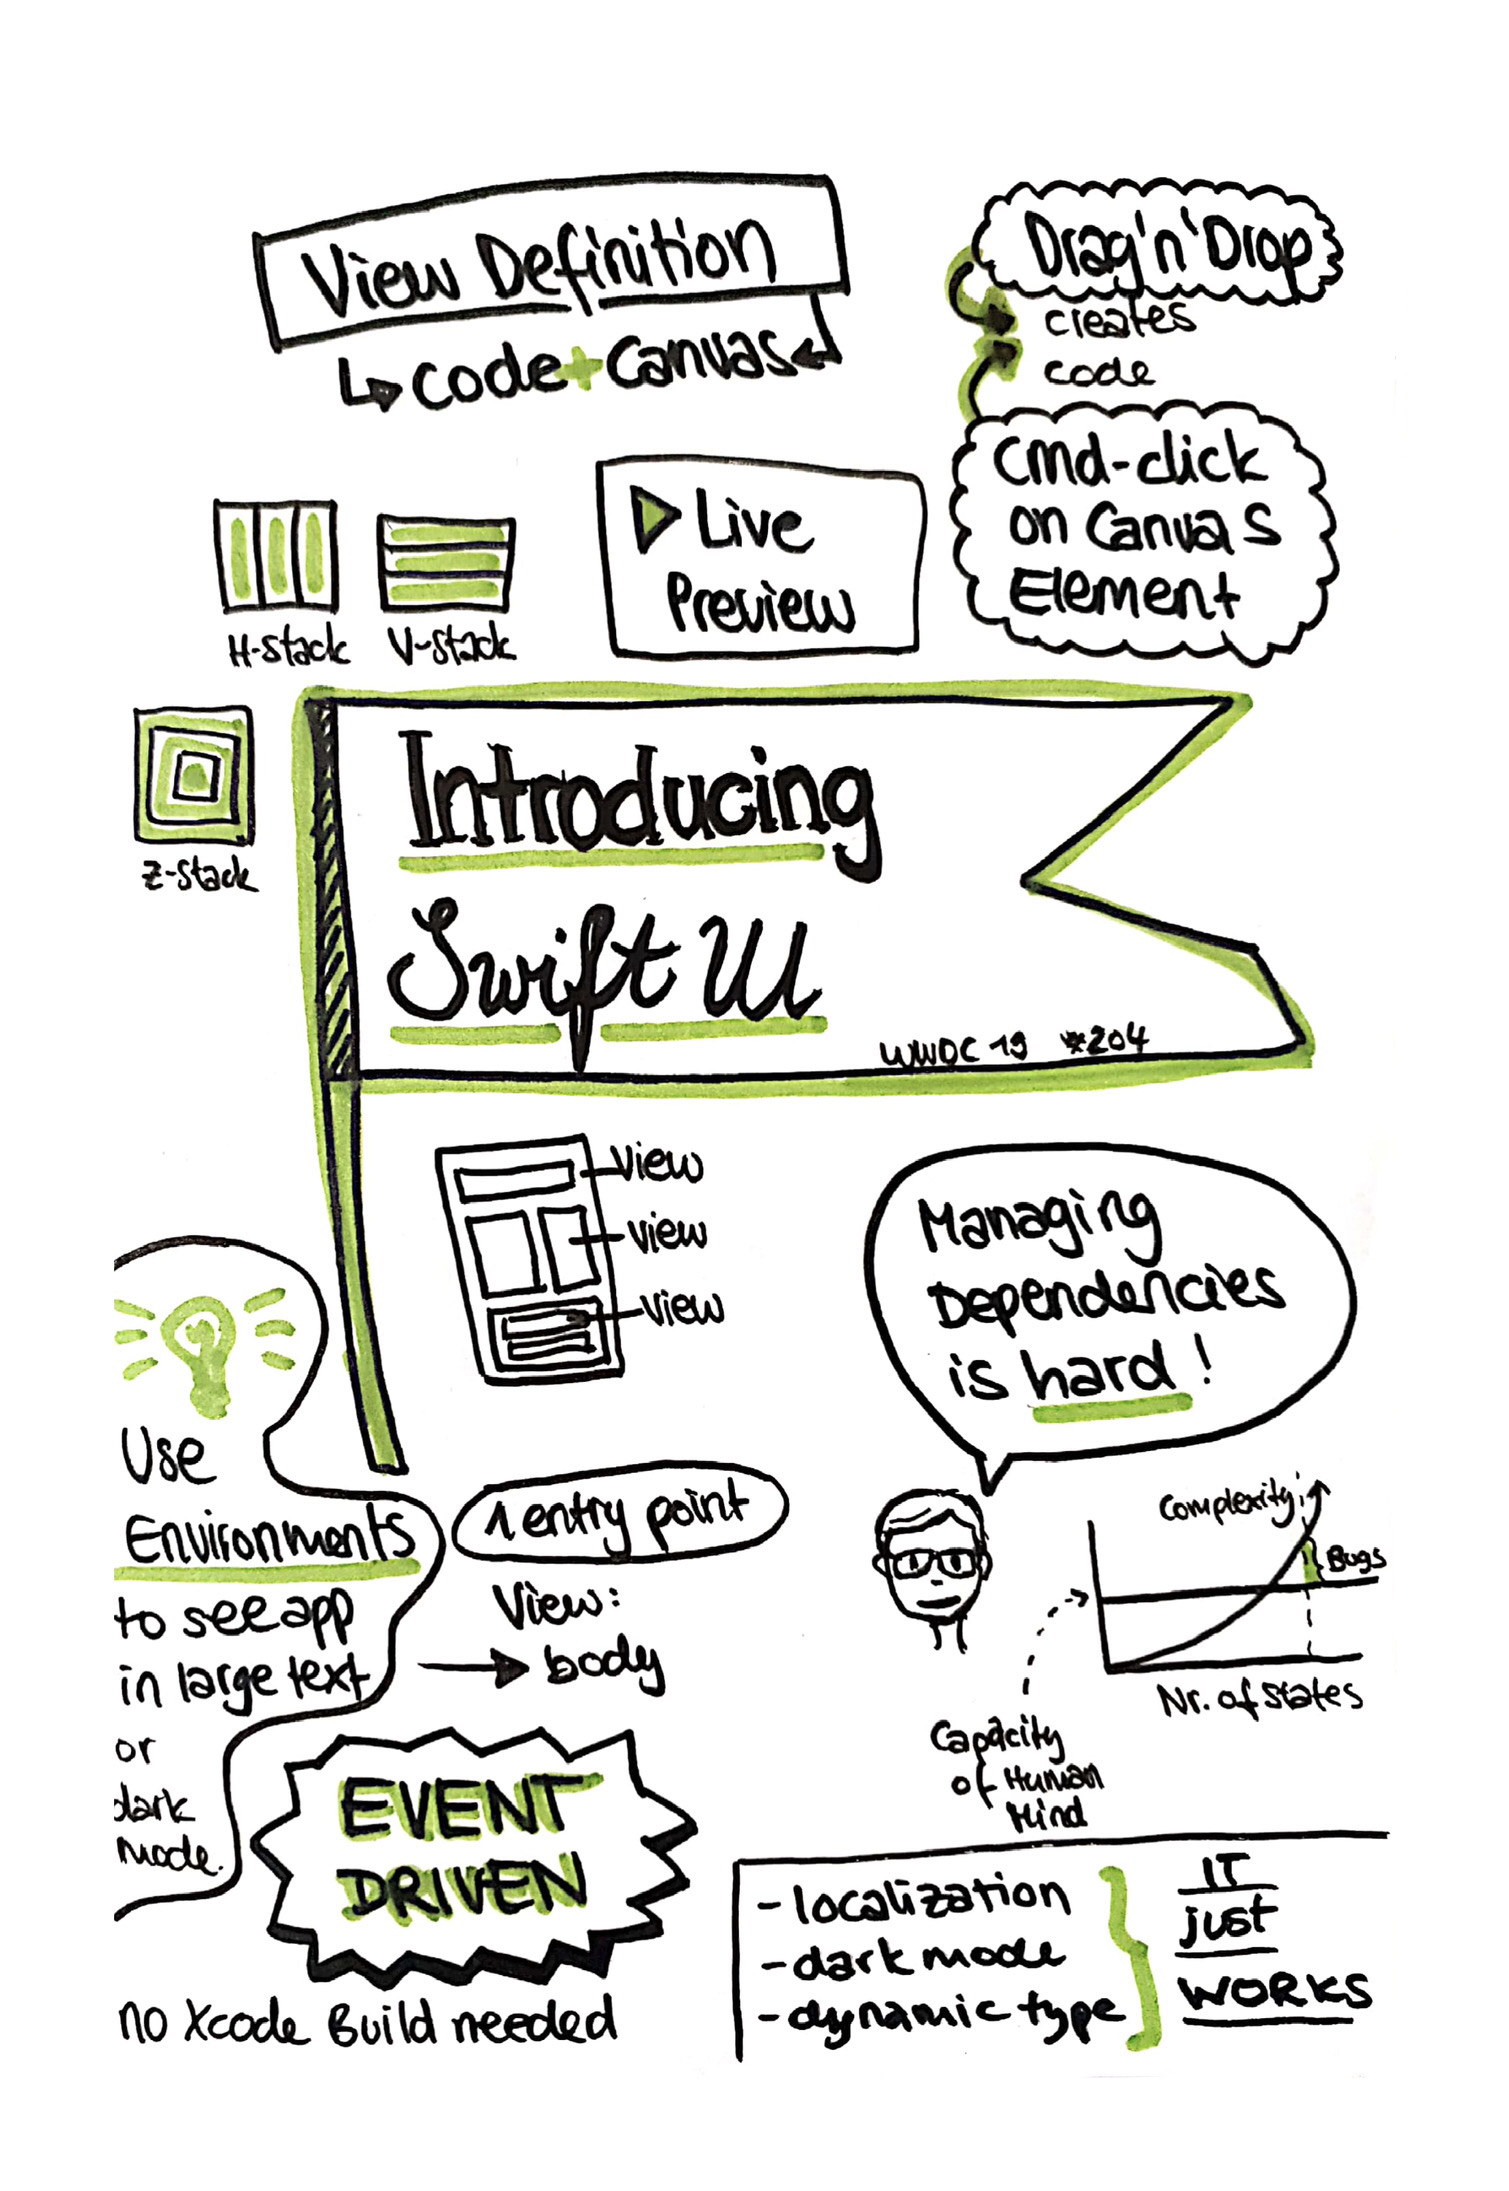 View Definition
code + Canvas
Drag'n'Drop
creates
code
Cmd-click
on Canvas
Element
Live
Preview
H-Stack
V-Stack
Z-Stack
Introducing
Swift UI
WWDC 19 #204
View
View
View
Managing
Dependencies
is hard!
Use
Environments
to see app
in large text
or
dark
mode.
1 entry point
View:
body
Complexity
Bugs
Nr. of States
Capacity
of Human
Mind
EVENT
DRIVEN
no Xcode Build needed
- localization
- dark mode
- dynamic type
IT
just
WORKS